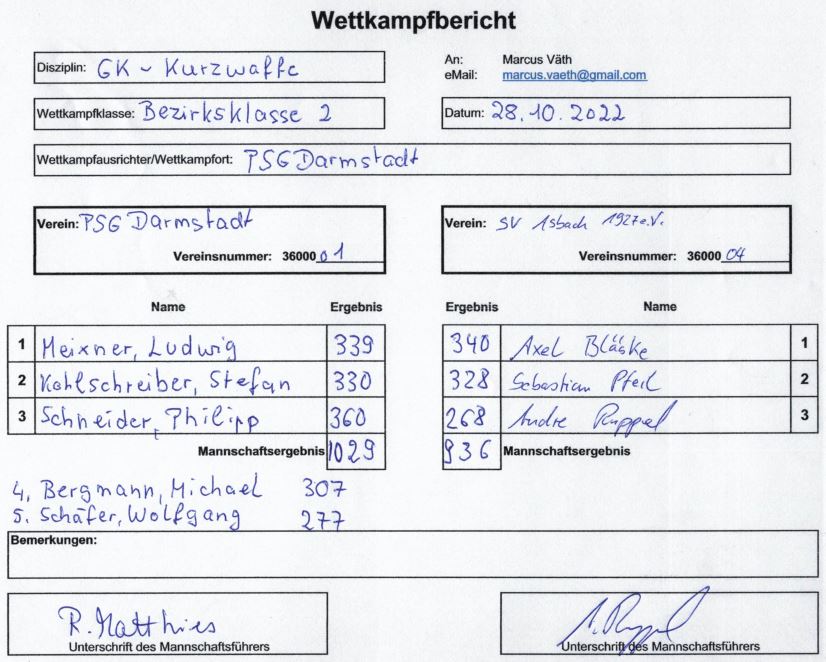 Wettkampfbericht
Disziplin: GK - Kurzwaffe
An: Marcus Väth
eMail: marcus.vaeth@gmail.com
Wettkampfklasse: Bezirksklasse 2
Datum: 28.10.2022
Wettkampfausrichter/Wettkampfort: PSG Darmstadt
Verein: PSG Darmstadt
Vereinsnummer: 36000 01
Verein: SV Asbach 1927 e.V.
Vereinsnummer: 36000 04
Name Ergebnis Ergebnis Name
1 Meixner, Ludwig 339 340 Axel Bläske 1
2 Kohlschreiber, Stefan 330 328 Sebastian Pfeil 2
3 Schneider, Philipp 360 268 Andre Ruppel 3
Mannschaftsergebnis 1029 936 Mannschaftsergebnis
4, Bergmann, Michael 307
5. Schäfer, Wolfgang 277
Bemerkungen:
R. Matthies
Unterschrift des Mannschaftsführers
A. Ruppel
Unterschrift des Mannschaftsführers